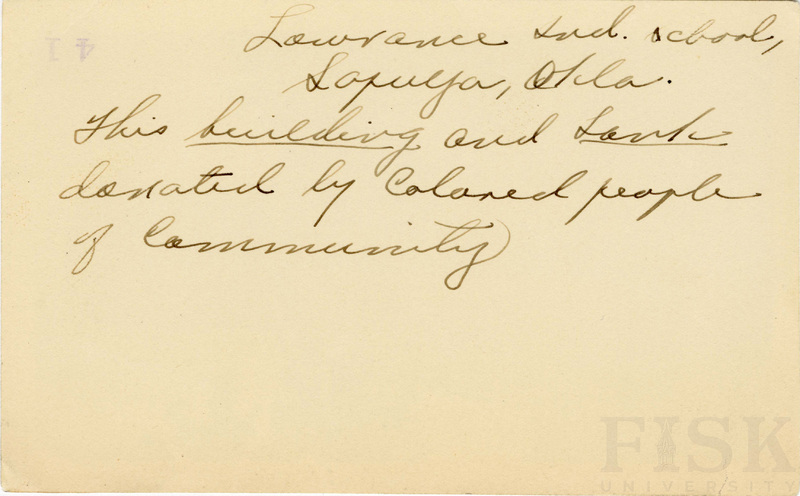 Lowrance Ind. School,
Sapulpa, Okla.
This building and tank
donated by Colored people
of Community
41
FISK
UNIVERSITY